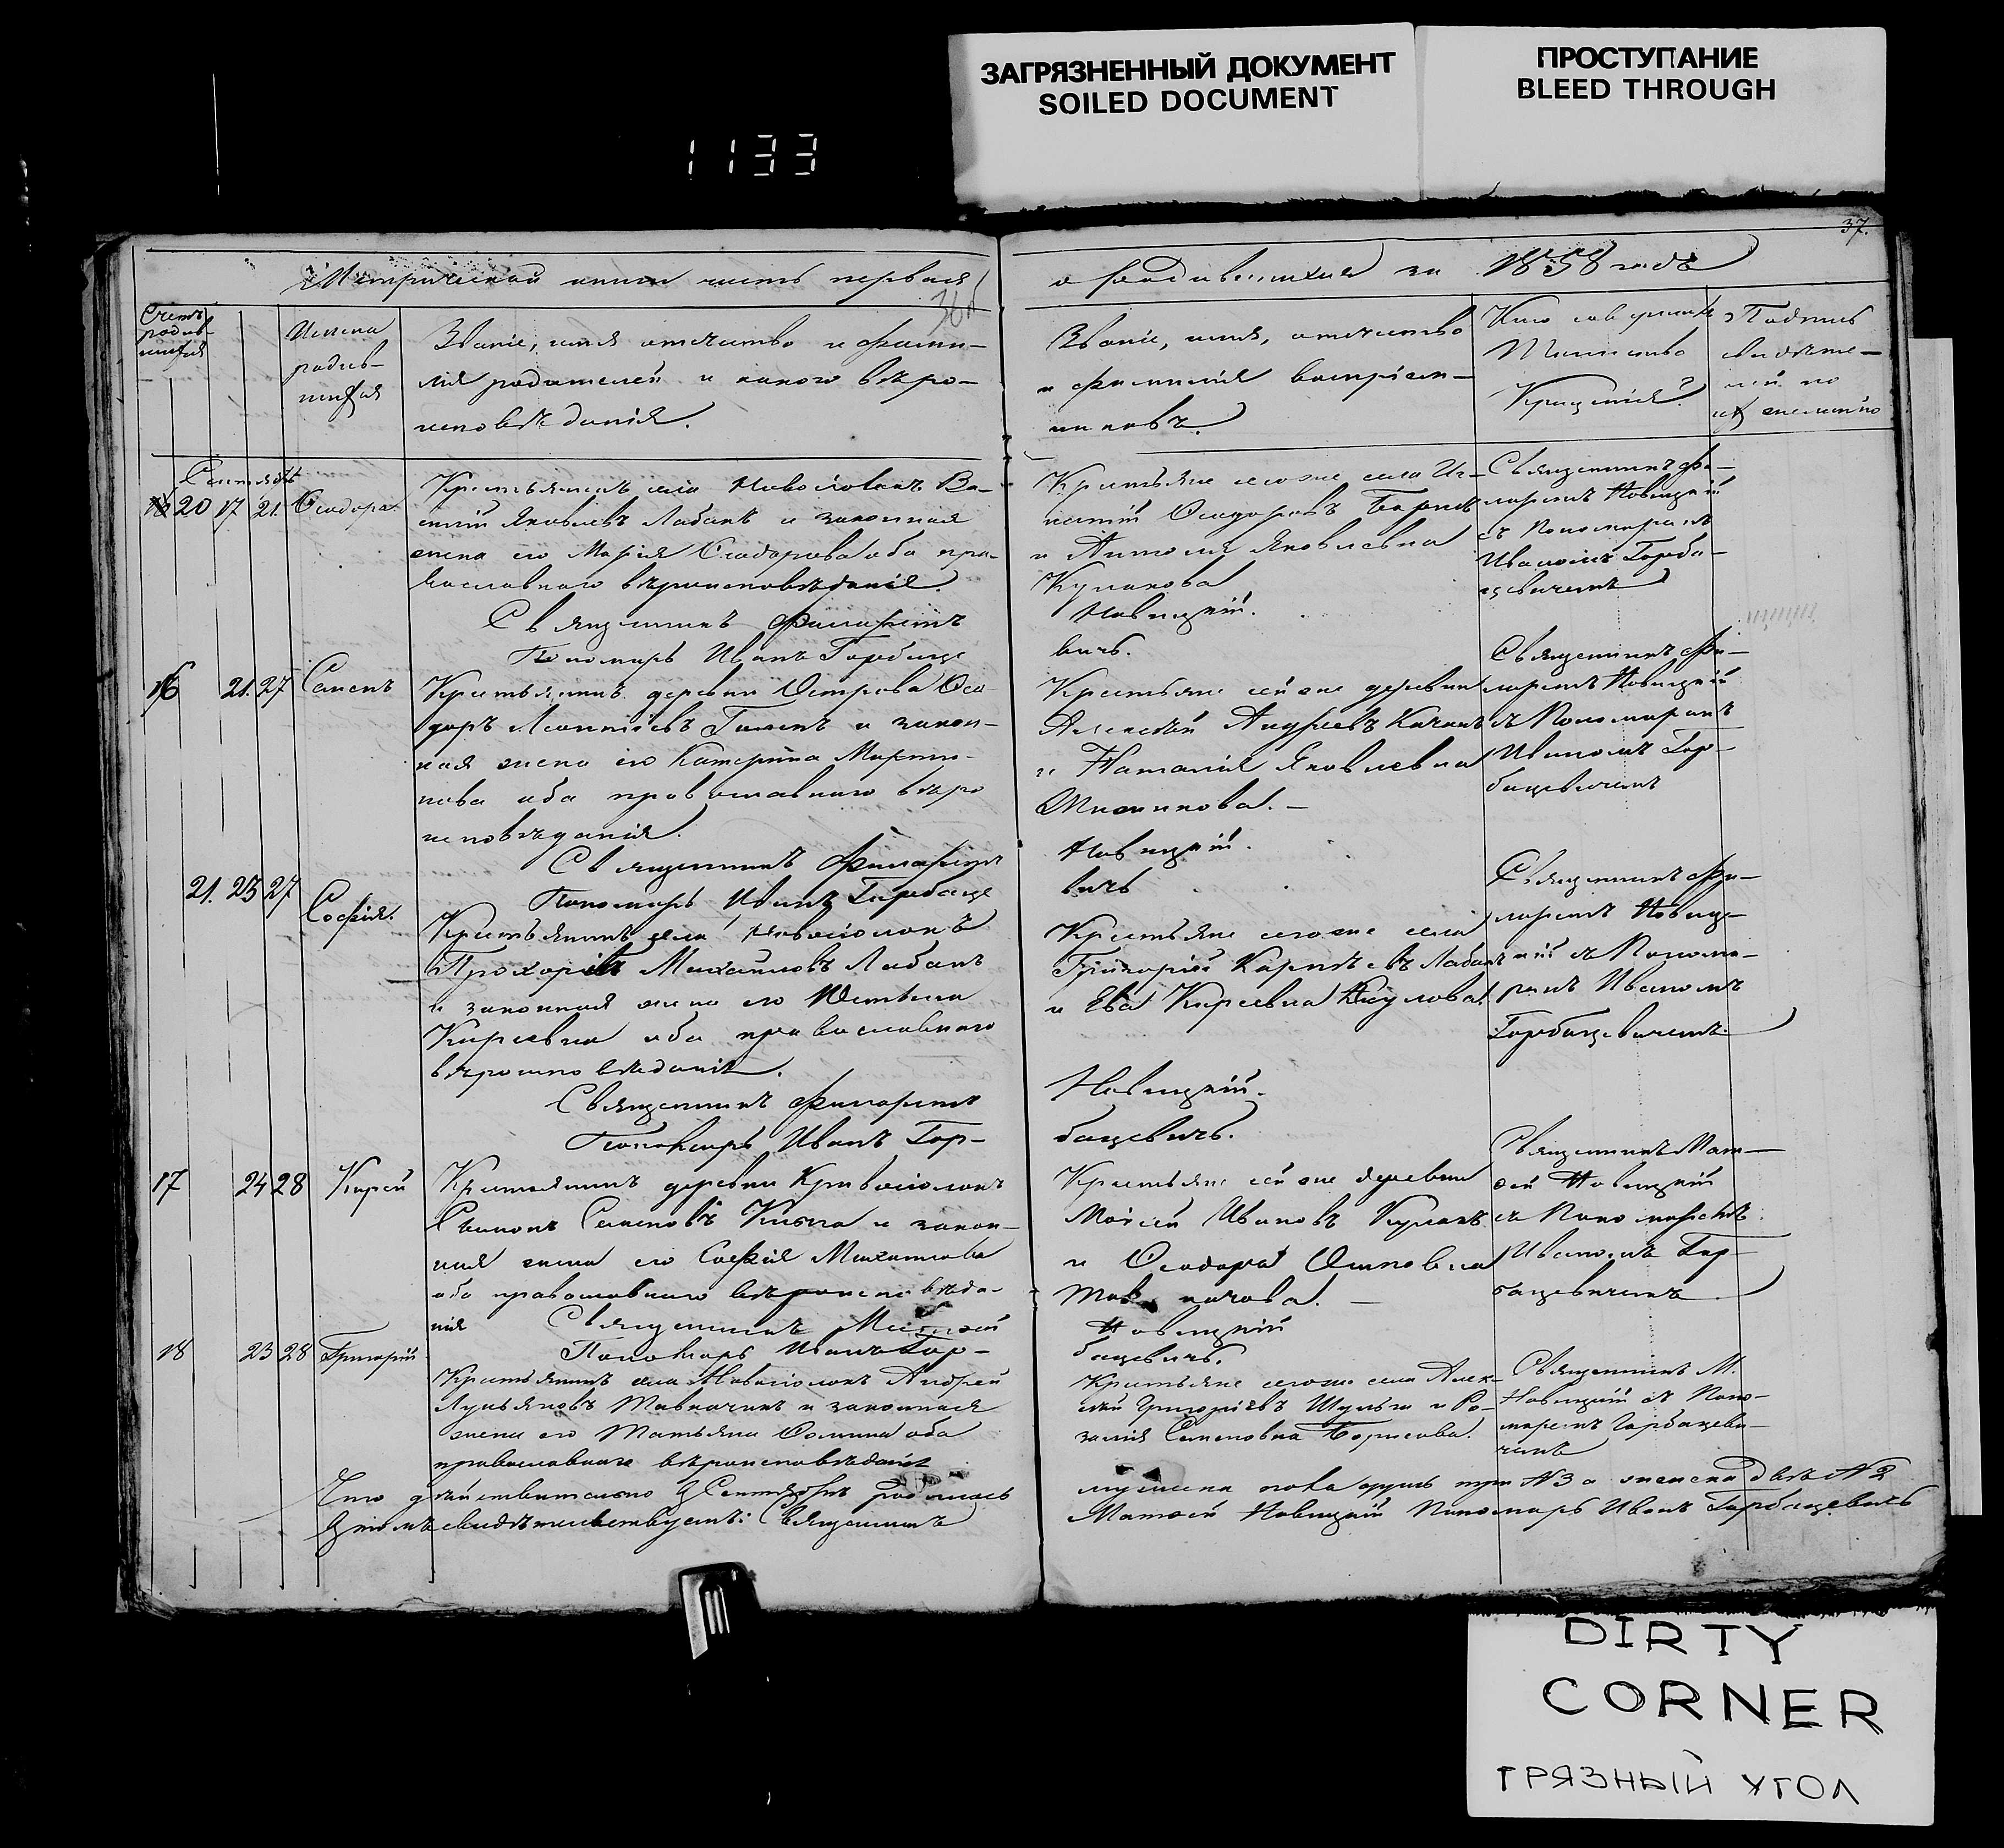 ЗАГРЯЗНЕННЫЙ ДОКУМЕНТ
SOILED DOCUMENT
ПРОСТУПАНИЕ
BLEED THROUGH
1133
37.
Метрической книги часть первая
о родившихся за 1858 годъ
Счетъ
родив-
шихся
Имена
родив-
шихся
Званіе, имя отчество и фами-
лія родителей и какого вѣро-
исповѣданія.
Званіе, имя, отчество
и фамилія воспріем-
никовъ.
Кто совершалъ
Таинство
Крещенія?
Подпись
свидѣте-
лей по
их желанію
Сентябрь
20 17 21. Ѳеодора.
Крестьянинъ села Новоселокъ Ва-
силій Яковлевъ Лабанъ и законная
жена его Марія Ѳеодорова оба пра-
вославнаго вѣроисповѣданія.
Священникъ Филаретъ
Пономарь Иванъ Горбаце
Крестьяне сегоже села Иг-
натій Ѳеодоровъ
и Яковлевна
Кулакова
Новицкій.
вичъ.
Священникъ Фи-
ларетъ Новицкій
съ Пономаремъ
Иваномъ Горба-
цевичемъ
16 21. 27 Семенъ
Крестьянинъ деревни Острова Ѳео-
доръ Леонтіевъ и закон-
ная жена его Катерина Марти-
нова оба православнаго вѣро
исповѣданія.
Священникъ Филаретъ
Пономарь Иванъ Горбаце
Крестьяне сей же деревни
Алексѣй Андреевъ Качанъ
и Наталія Яковлевна
Новицкій.
вичъ
Священникъ Фи-
ларетъ Новицкій
съ Пономаремъ
Иваномъ Гор-
бацевичемъ
21. 25 27 Софія.
Крестьянинъ села Новоселокъ
Прохоръ Михайловъ Лабанъ
и законная жена его Устинья
Киреевна оба православнаго
вѣроисповѣданія.
Священникъ Филаретъ
Пономарь Иванъ Гор-
Крестьяне сегоже села
Григорій Карпѣевъ Лабанъ
и Ева Киреевна
Новицкій.
бацевичъ.
Священникъ Фи-
ларетъ Новиц-
кій съ Понома-
ремъ Иваномъ
Горбацевичемъ.
17 24 28 Кирей
Крестьянинъ деревни Кривоселокъ
Семенъ Семеновъ и закон-
ная жена его Софія Михайлова
оба православнаго вѣроисповѣда-
нія Священникъ Матѳей
Пономарь Иванъ Гор-
Крестьяне сей же деревни
Моисей Ивановъ Кулакъ
и Ѳеодора Осиповна
Новицкій
бацевичъ.
Священникъ Мат-
ѳей Новицкій
съ Пономаремъ
Иваномъ Гор-
бацевичемъ
18 23 28 Григорій
Крестьянинъ села Новоселокъ Андрей
Лукьяновъ и законная
жена его Татьяна Ѳомина оба
православнаго вѣроисповѣданія
Крестьяне сегоже села Алек-
сѣй Григоріевъ Шульга и Ро-
залія Семеновна Борисова.
Священникъ М.
Новицкій съ Поно-
маремъ Горбацеви-
чемъ
Что дѣйствительно въ Сентябрѣ родилось
мужеска пола душъ три №3 а женска двѣ №2
въ томъ свидѣтельствуемъ: Священникъ
Матѳей Новицкій Пономарь Иванъ Горбацевичъ
DIRTY
CORNER
ГРЯЗНЫЙ УГОЛ